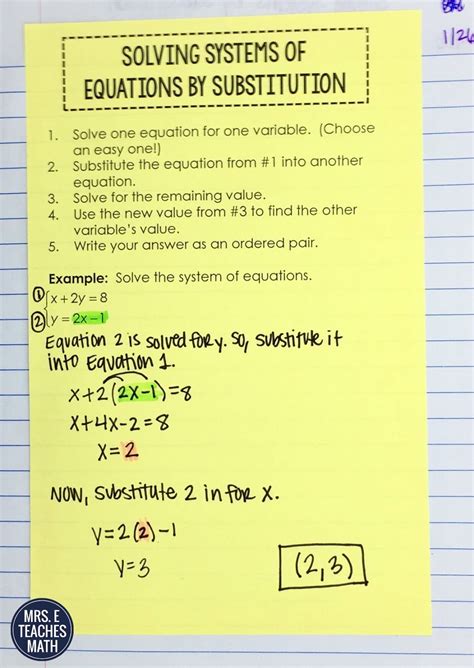 1/26
SOLVING SYSTEMS OF
EQUATIONS BY SUBSTITUTION
1. Solve one equation for one variable. (Choose
an easy one!)
2. Substitute the equation from #1 into another
equation.
3. Solve for the remaining value.
4. Use the new value from #3 to find the other
variable's value.
5. Write your answer as an ordered pair.
Example: Solve the system of equations.
① { x + 2y = 8
② { y = 2x − 1
Equation 2 is solved for y. So, substitute it
into Equation 1.
x+2(2x-1)=8
x+4x-2=8
x=2
Now, substitute 2 in for x.
y=2(2)-1
y=3
(2,3)
MRS. E
TEACHES
MATH